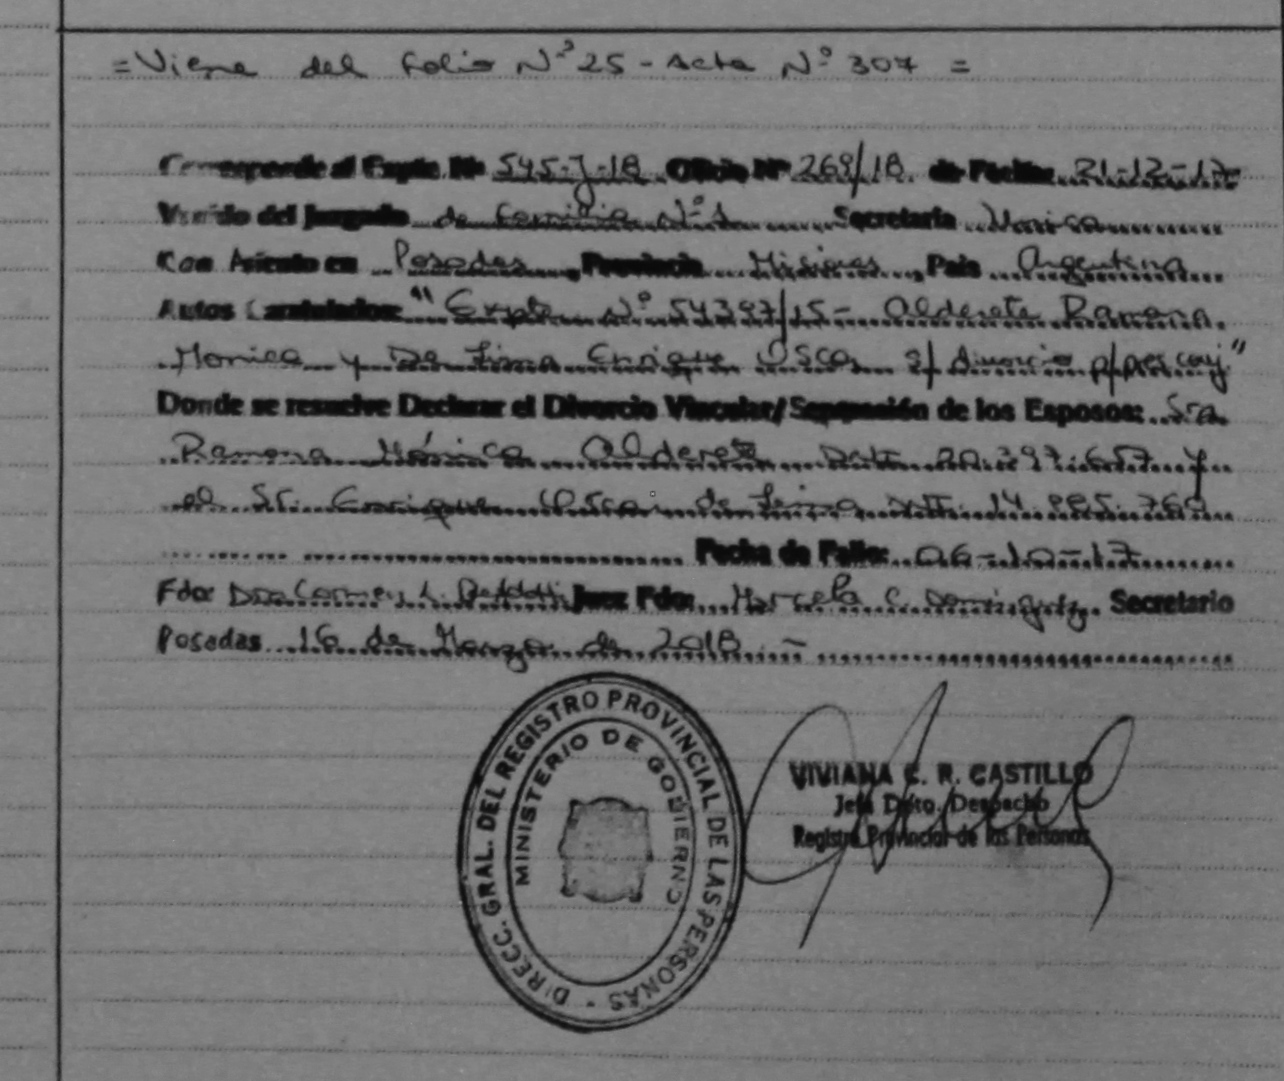 = Viene del folio Nº 25 - Acta Nº 307 =
Corresponde al Expte. Nº 545-J-18 Oficio Nº 269/18 de Fecha: 21-12-17-
Venido del Juzgado de Familia Nº 1 Secretaría Unica
Con Asiento en Posadas, Provincia Misiones, Pais Argentina
Autos Caratulados: "Expte Nº 54397/15 - Alderete Ramona
Monica y De Lima Enrique Oscar s/ divorcio p/pres conj"
Donde se resuelve Declarar el Divorcio Vincular/Separación de los Esposos: Sra
Ramona Mónica Alderete DNI 20.397.657 y
el Sr. Enrique Oscar de Lima DNI. 14.885.760
Fecha de Fallo: 06-10-17
Fdo: Dra Carmen L. Juez Fdo: Marcela C. Dominguez. Secretario
Posadas 16 de Marzo de 2018.-
DIRECC. GRAL. DEL REGISTRO PROVINCIAL DE LAS PERSONAS -
MINISTERIO DE GOBIERNO
VIVIANA C. R. CASTILLO
Jefa Dpto. Despacho
Registro Provincial de las Personas